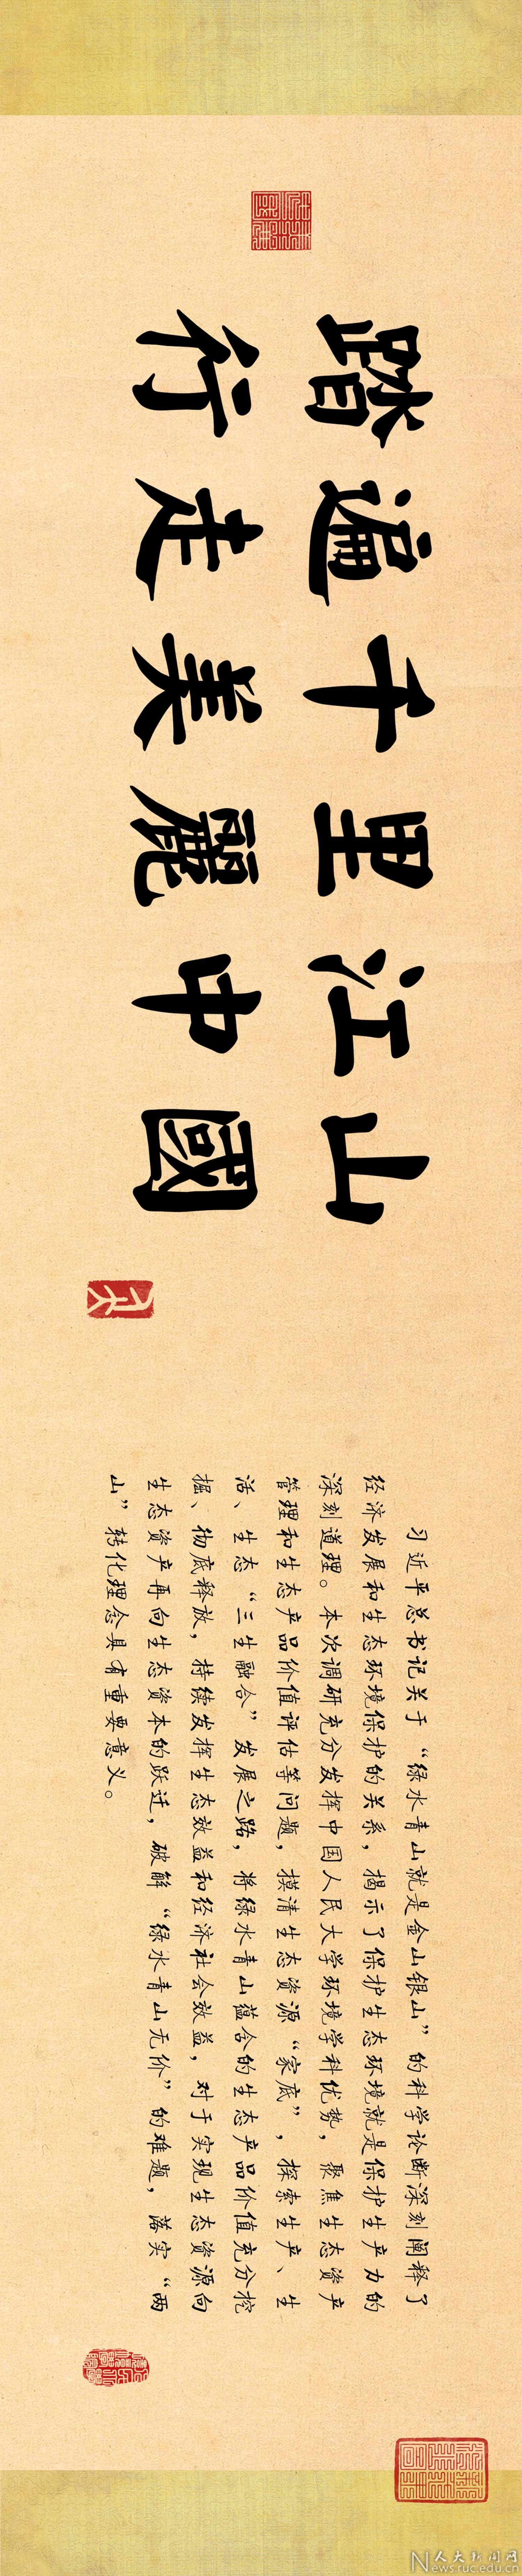 踏遍千里江山
行走美麗中國
习近平总书记关于“绿水青山就是金山银山”的科学论断深刻阐释了
经济发展和生态环境保护的关系，揭示了保护生态环境就是保护生产力的
深刻道理。本次调研充分发挥中国人民大学环境学科优势，聚焦生态资产
管理和生态产品价值评估等问题，摸清生态资源“家底”，探索生产、生
活、生态“三生融合”发展之路，将绿水青山蕴含的生态产品价值充分挖
掘、彻底释放，持续发挥生态效益和经济社会效益，对于实现生态资源向
生态资产再向生态资本的跃迁，破解“绿水青山无价”的难题，落实“两
山”转化理念具有重要意义。
人大新闻网
News.ruc.edu.cn